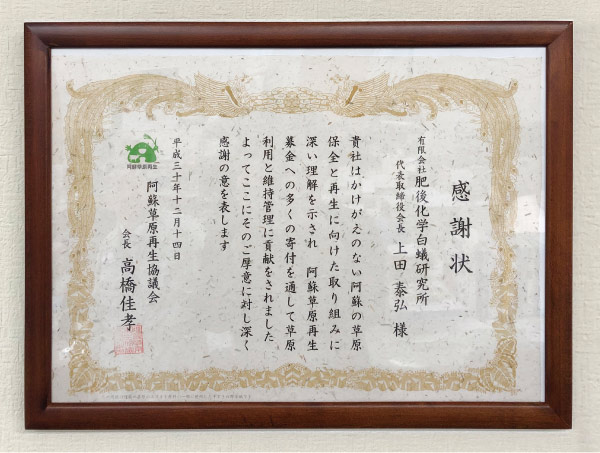 感謝状
有限会社 肥後化学白蟻研究所
代表取締役会長 上田 泰弘 様
貴社はかけがえのない阿蘇の草原
保全と再生に向けた取り組みに
深い理解を示され 阿蘇草原再生
募金への多くの寄付を通して草原
利用と維持管理に貢献をされました
よってここにそのご厚意に対し深く
感謝の意を表します
平成三十年十二月十四日
阿蘇草原再生協議会
会長 高橋佳孝
阿蘇草原再生